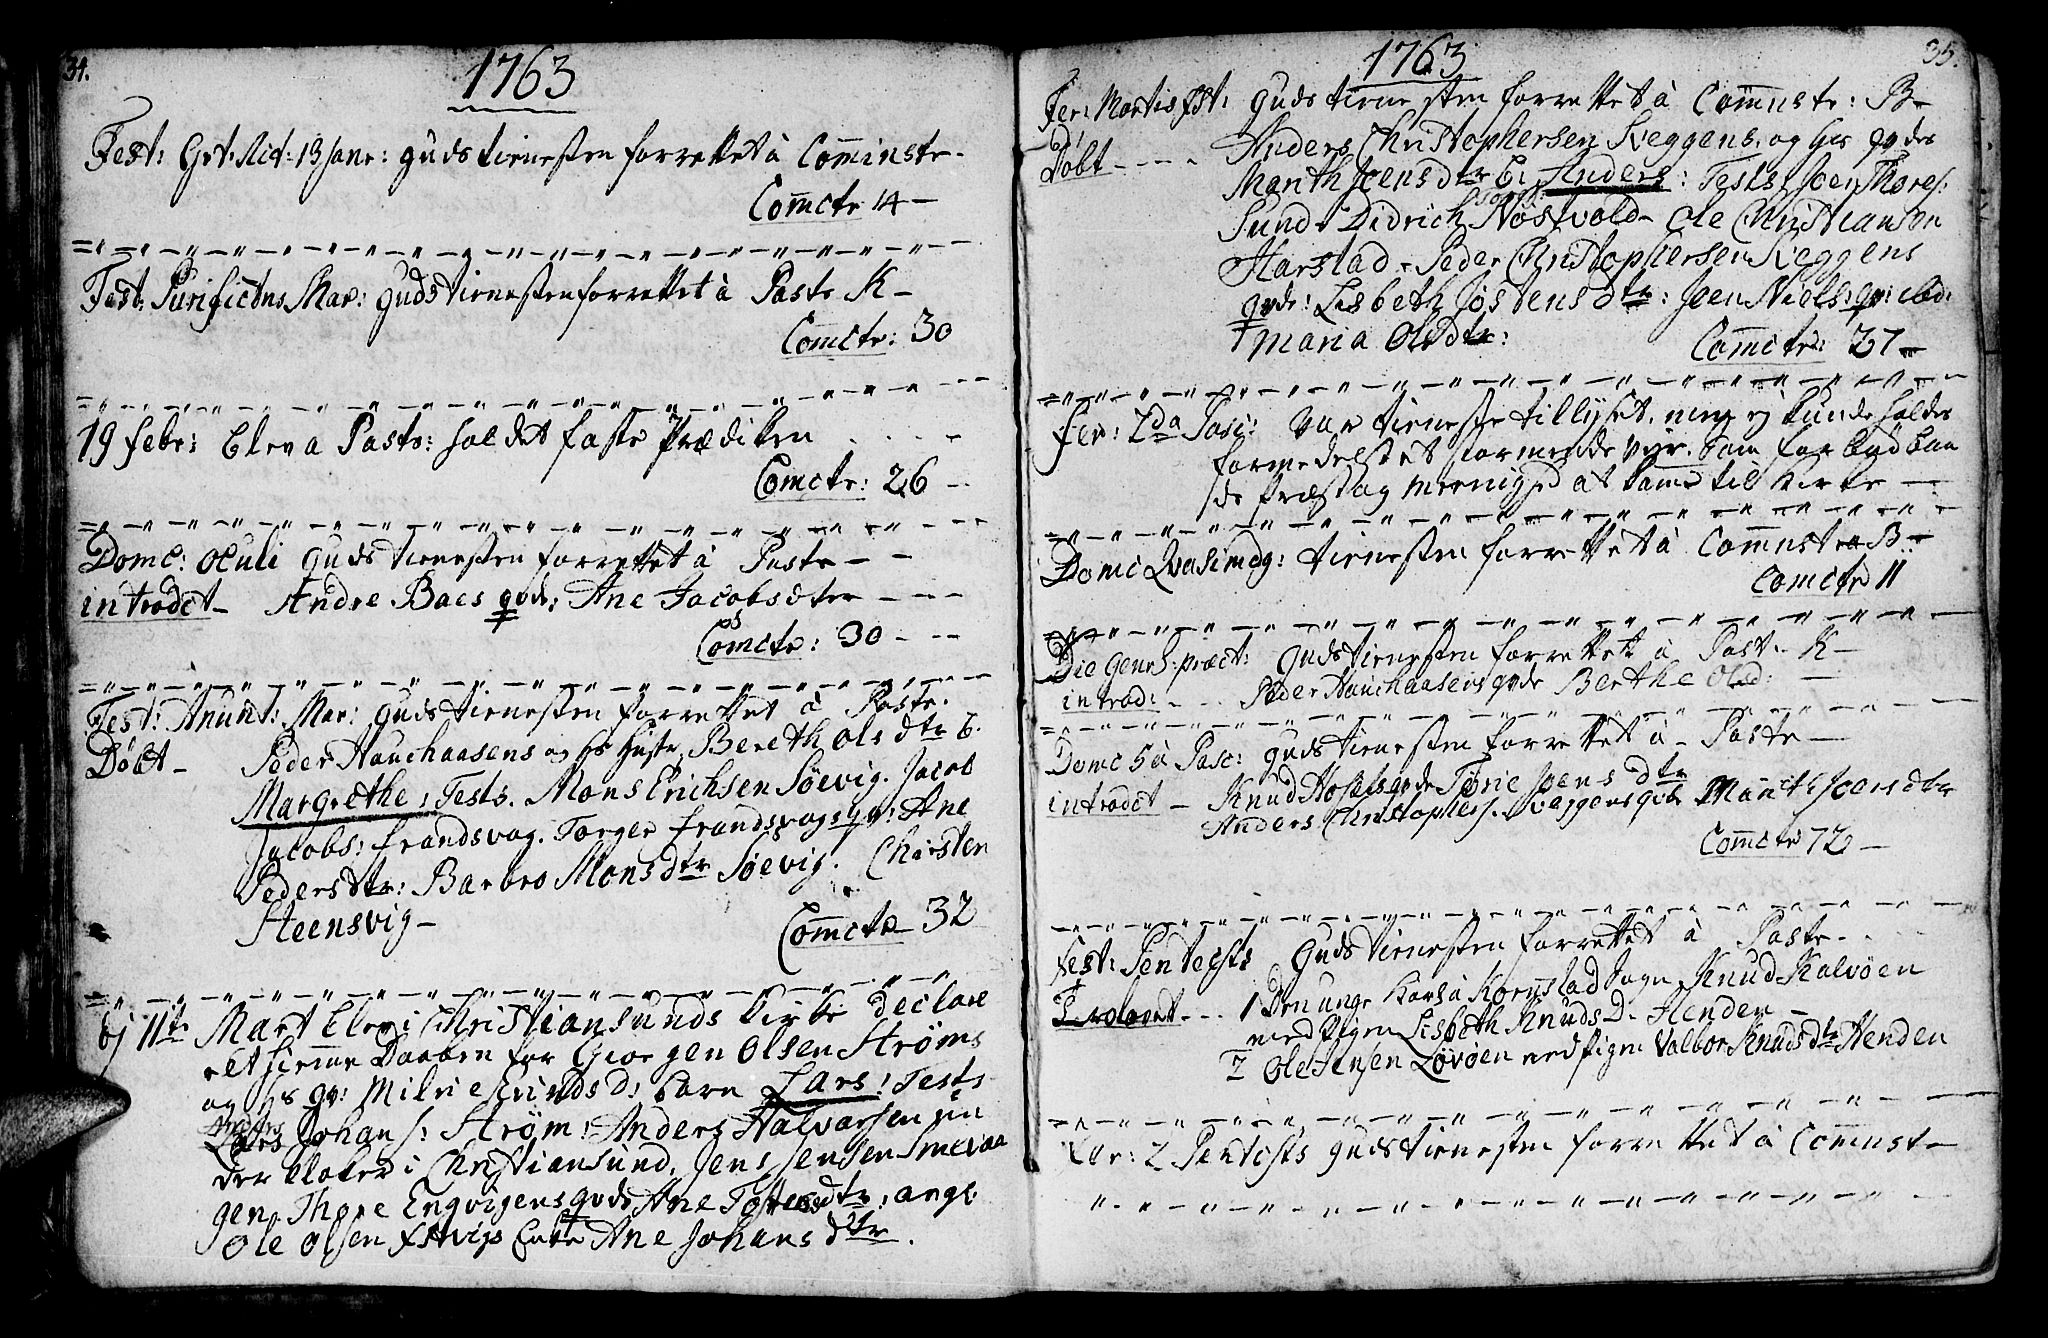 34.
1763
Fest: Grt: Act: 13 Janr: Guds tienesten forrettet å Cominste.
Comcte 14 —
Fest: Purifictns Mar: Guds tienesten forrettet å Paste K —
Comcte: 30
19 febr: Eleva Pasts: holdet faste Prædiken
Comcte: 26 —
Domc: Oculi Guds tienesten forrettet å Paste —
introdct — Andre Baes qvde: Ane Jacobsdter — — —
Comcte: 30 — —
Fest: Anunt: Mar: Guds tienesten forrettet å Paste.
Döbt — Peder Hauchaasens og hs Hustr, Bereth Olsdtr b.
Margrethe; Tests. Mons Erichsen Söevig. Jacob
Jacobs: frandsvag. Torger frandsvags qv: Ane
Pedersdtr: Barbro Monsdtr Söevig. Chirsten
Steensvig —
Comcte 32
ej 11te Mart Elevi Christiansunds Kirke declare
ret hiemme Daaben for Giørgen Olsen Strøms
og hs qv: Milrie Erindsd: barn Lars: Tests
Lars Johans: Strøm; Anders Halvorsen
der kloker i Christiansund, Jens Jensen Smevaa
gen, Thore Engvigens qvde Ane Tostensdtr: angl:
Ole Olsen Estvigs Enke Ane Johansdtr.
35.
1763
Fer: Martis fst: Guds tienesten forrettet å Comnste: B —
Döbt — — — Anders Christophersen Kveggens. og hs qvdes
Marith Joensdtr b: Anders: Tests, Joen Thores:
Sund. Didrich Nöstvold — Ole Christiansen
Harstad — Peder Christophersen Kveggens
qvde: Lisbeth Jostensdtr: Joen Niels: qv: ibd:
Maria Olsdtr:
Comcte: 27 —
Fer: 2da Pasc: Var tieneste tillyset, men ej kunde holdes
formedelst et stormende vejr. Som forbødbaa
de Præst og meenighed at kome til Kirke —
Domc Qvasimdg: tienesten forrettet å Comnstre B:
Comcte 11
Die Genrl: præct: Guds tienesten forrettet å Past. K —
introd: — — Peder Hauchaasens qvde Berthe Olsd: —
Domc 5 à Pasc: Guds tienesten forrettet å Paste —
introdct — Knud Hosets qvde Törie Joensdtr
Anders Christophers. Kveggens qvde Marith Joensdtr
Comcte 72 —
Fest: Pentecsts Guds tienesten forrettet å Paste —
Trolovet — — 1 Den unge Karl å Kornstad Sogn Knud Kalvöen
med Pigen Lisbeth Knudsd. Henden —
2 Ole Jensen Lövöen med Pigen Valbor Knudsdtr Henden
Fer: 2 Pentecsts Guds tienesten forrettet å Comnst —